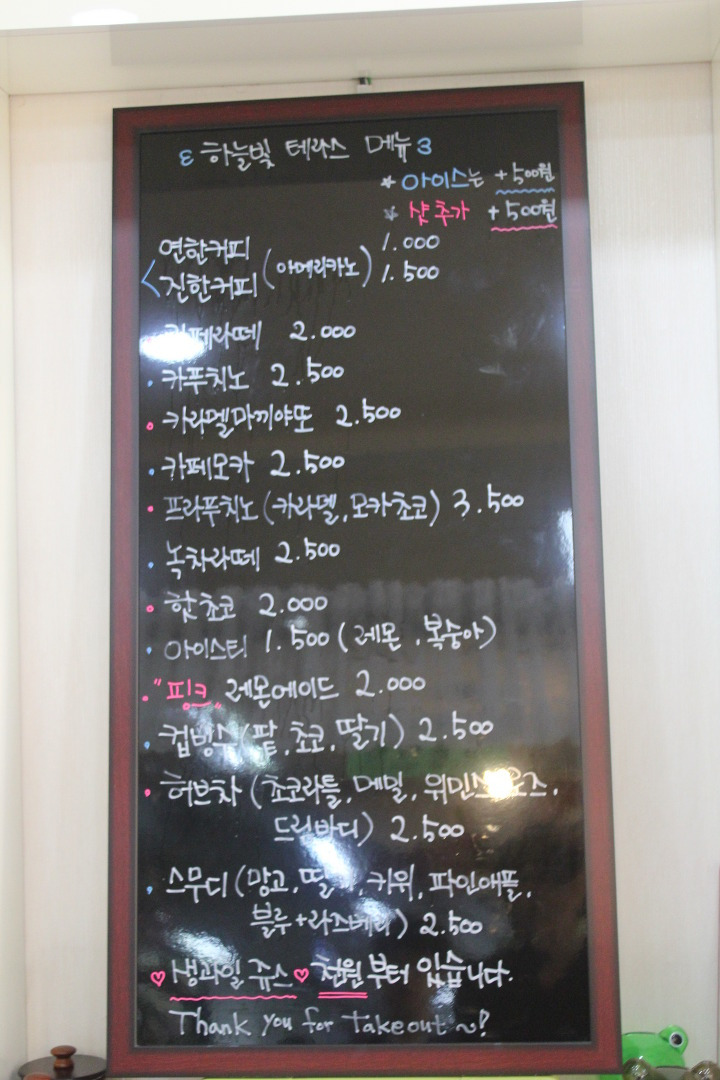 ε 하늘빛 테라스 메뉴 3
* 아이스는 +500원
* 샷추가 +500원
연한커피 1.000
진한커피 (아메리카노) 1.500
카페라떼 2.000
· 카푸치노 2.500
· 카라멜마끼야또 2.500
· 카페모카 2.500
· 프라푸치노 (카라멜, 모카초코) 3.500
· 녹차라떼 2.500
· 핫쵸코 2.000
· 아이스티 1.500 (레몬, 복숭아)
· "핑크" 레몬에이드 2.000
· 컵빙수 (팥, 쵸코, 딸기) 2.500
· 허브차 (쵸코라틀, 메밀,
드림바디) 2.500
· 스무디 (망고, 딸기, 키위, 파인애플,
블루+라즈베리) 2.500
♡ 생과일 쥬스 ♡ 천원부터 있습니다.
Thank you for Takeout ~!